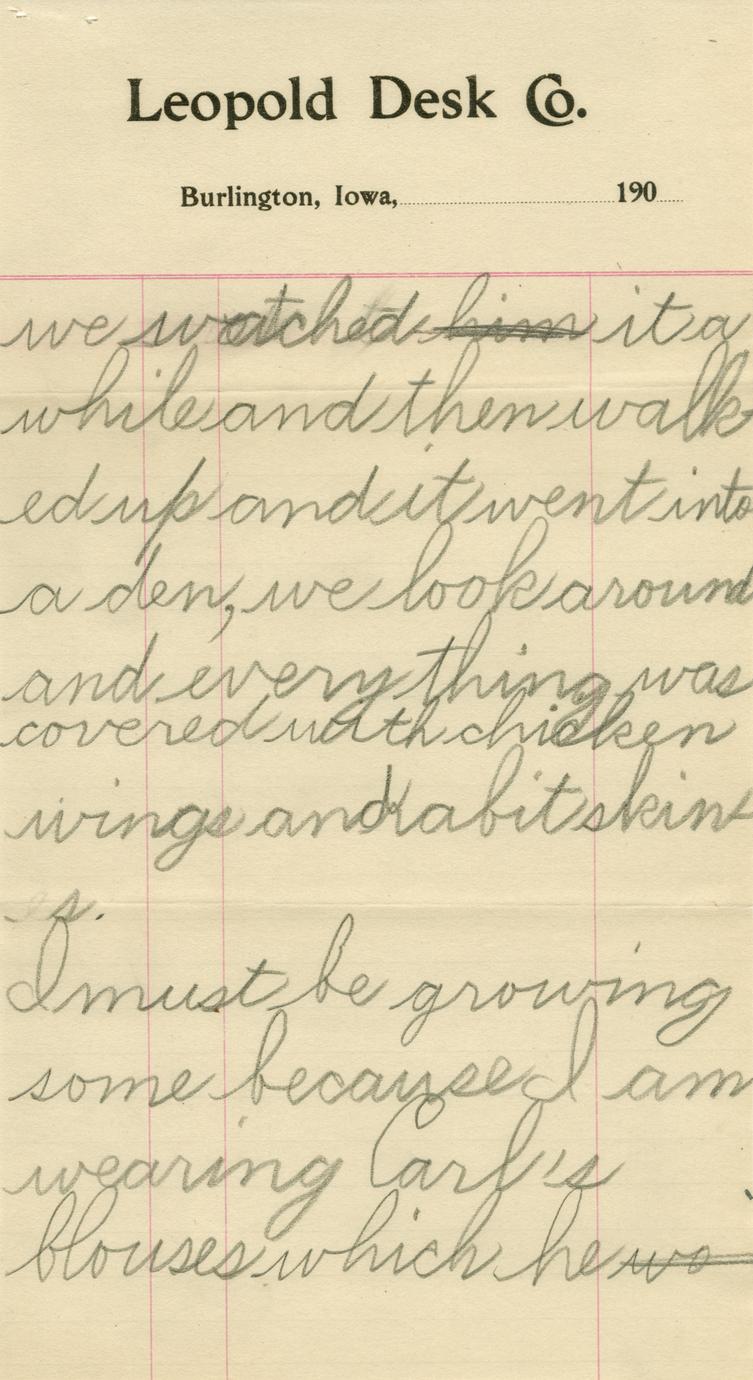 Leopold Desk Co.
Burlington, Iowa, 190
we watched him it a
while and then walk
ed up and it went into
a den, we look around
and everything was
covered with chicken
wings and rabit skin
s.
I must be growing
some because I am
wearing Carl's
blouses which he wo